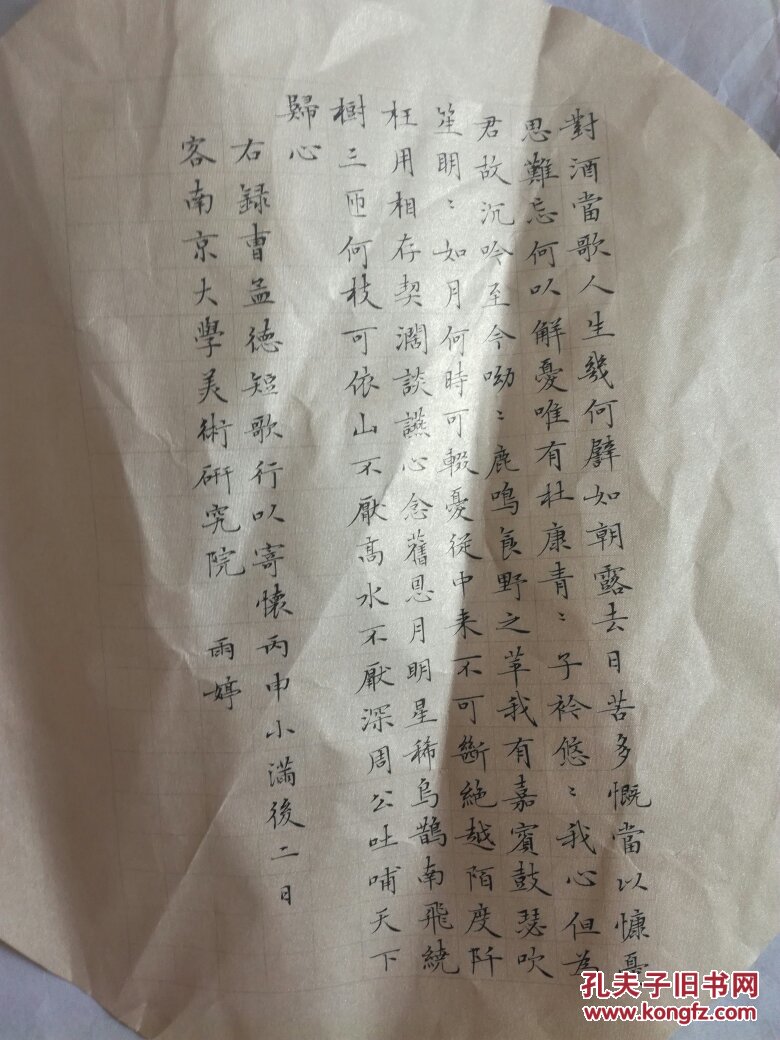 對酒當歌人生幾何譬如朝露去日苦多慨當以慷憂
思難忘何以解憂唯有杜康青〻子衿悠〻我心但為
君故沉吟至今呦〻鹿鳴食野之苹我有嘉賓鼓瑟吹
笙明〻如月何時可輟憂從中来不可斷絕越陌度阡
枉用相存契濶談讌心念舊恩月明星稀烏鵲南飛繞
樹三匝何枝可依山不厭高水不厭深周公吐哺天下
歸心
右録曹孟德短歌行以寄懷丙申小滿後二日
客南京大學美術研究院 雨婷
孔夫子旧书网
www.kongfz.com